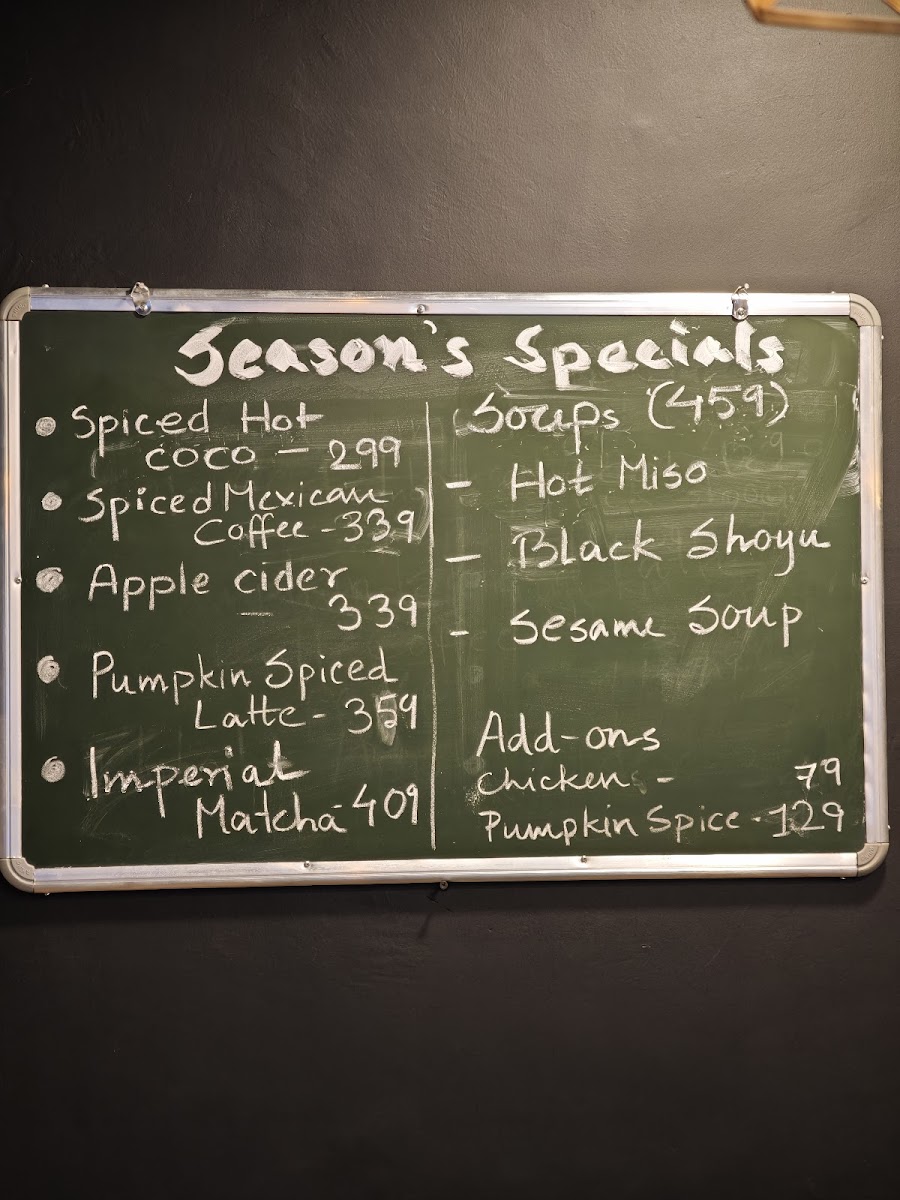 Season's Specials
• Spiced Hot
coco - 299
• Spiced Mexican
Coffee - 339
• Apple cider
- 339
• Pumpkin Spiced
Latte - 359
• Imperial
Matcha - 409
Soups (459)
- Hot Miso
- Black Shoyu
- Sesame Soup
Add-ons
Chicken - 79
Pumpkin Spice - 129